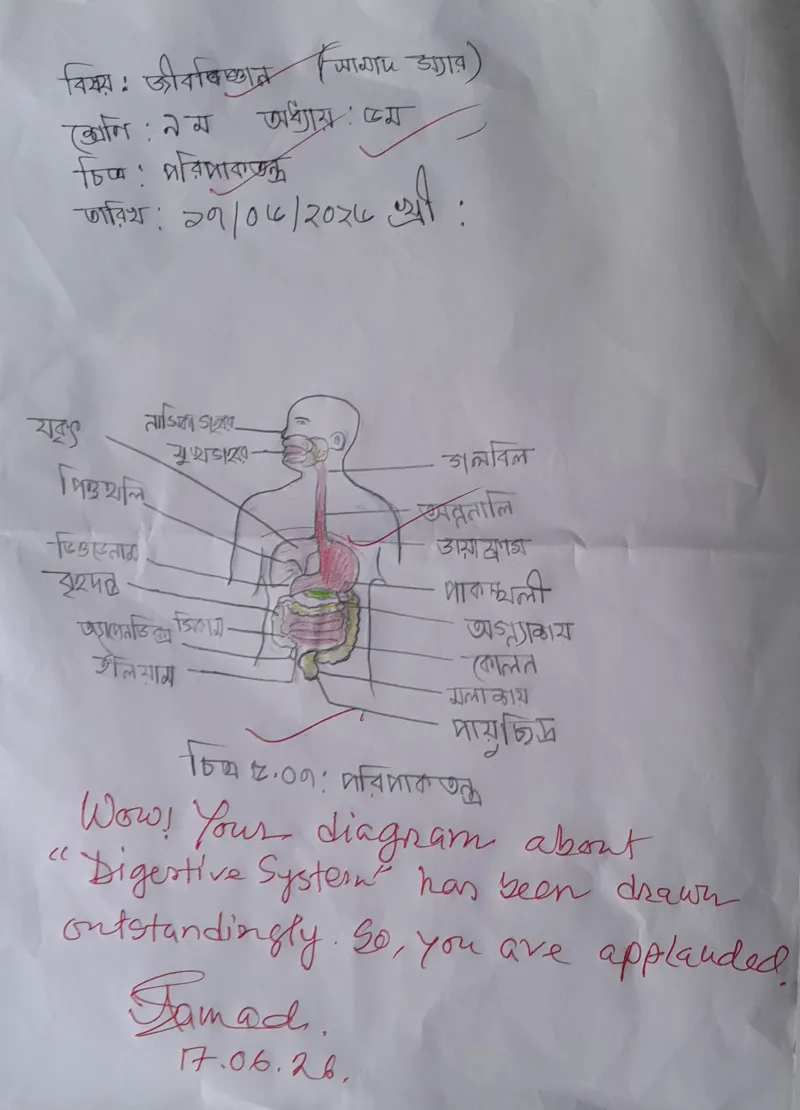 বিষয়: জীববিজ্ঞান (সামাদ স্যার)
শ্রেণি: ৯ম অধ্যায়: ৫ম
চিত্র: পরিপাকতন্ত্র
তারিখ: ১৭/০৬/২০২৬ খ্রী:
নাসিকা গহ্বর
যকৃৎ
মুখগহ্বর
গলবিল
পিত্তথলি
অন্ননালি
ডিওডেনাম
ডায়াফ্রাম
বৃহদন্ত্র
পাকস্থলী
অ্যাপেনডিক্স জিজুনাম
অগ্ন্যাশয়
ইলিয়াম
কোলন
মলাশয়
পায়ুছিদ্র
চিত্র ৫.০৭: পরিপাকতন্ত্র
Wow! Your diagram about
"Digestive System" has been drawn
outstandingly. So, you are applauded.
Samad.
17.06.26.